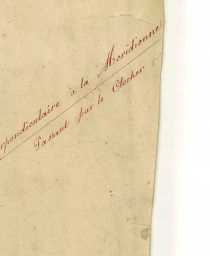 rpendiculaire à la Méridienne
Passant par le Clocher